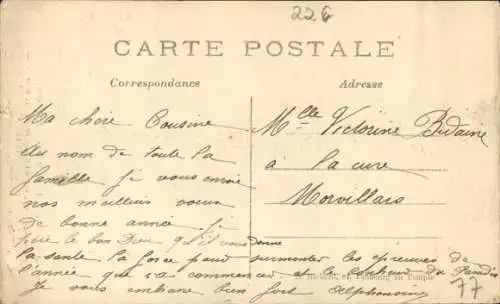 226
CARTE POSTALE
Correspondance
Adresse
Ma chère Cousine
Au nom de toute la
famille je vous envoie
nos meilleurs voeux
de bonne année. je
prie le bon Dieu qu'il vous donne
la santé la force pour surmonter les épreuves de
l'année que va commencer et le bonheur du Paradis
Je vous embrasse bien fort Alphonsine
Mlle Victorine Bidaine
à la cure
Morvillars
77